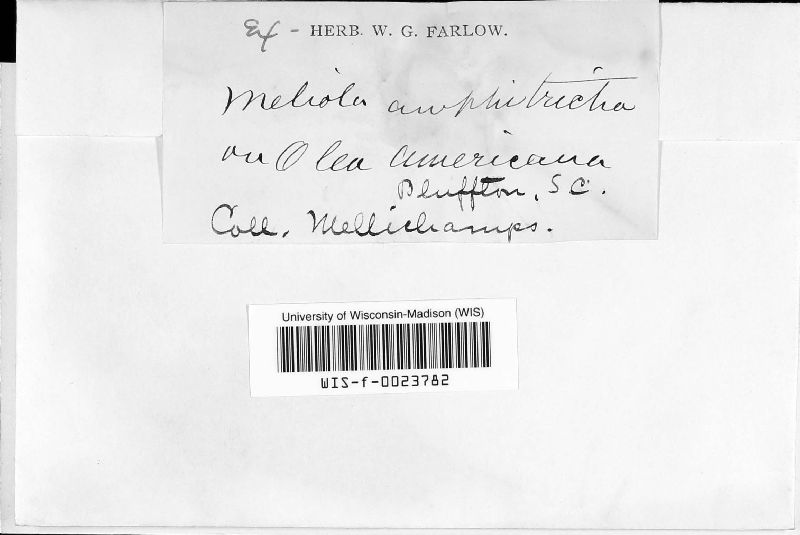 Ex - HERB. W. G. FARLOW.
Meliola amphitricha
on Olea americana
Bluffton, S C.
Coll. Mellichamps.
University of Wisconsin-Madison (WIS)
WIS-f-0023782